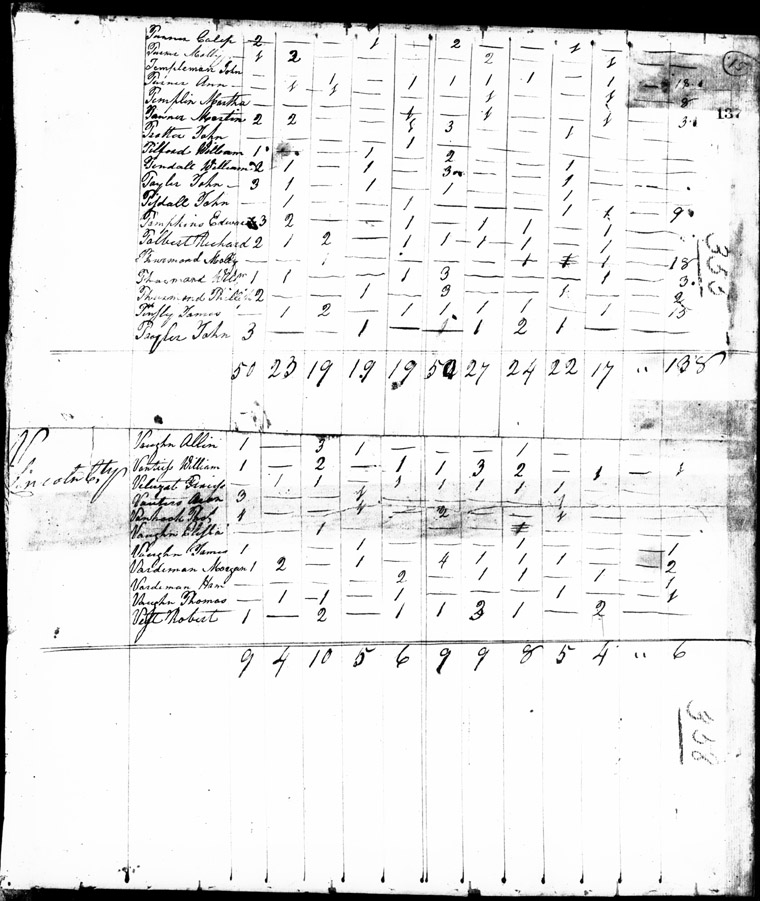 Turner Calep 2 — — 1 — 2 — — 1 — — —
Turner Molly 1 2 — — — — 2 — — 1 — —
Templeman John
Turner Ann — 1 1 — 1 1 1 1 — 1 — 18
Templin Martha — — — — — — 1 — — 1 — 8
Tanner Martin 2 2 — — 1 — 1 — — 1 — 3
Trotter John — — — — 1 3 — — 1 — — —
Tilford William 1 — — 1 — 2 — — — — — —
Tindall William 2 1 — 1 — 3 — — 1 — — —
Tayler John 3 1 — 1 — 1 — — 1 — — —
Tisdall John — 1 — — 1 — — — 1 — — —
Tompkins Edward 3 2 — — 1 — 1 1 — 1 — 9
Talbert Richard 2 1 2 — 1 1 1 1 — 1 — —
Thurmond Molly — — 1 — — — — 1 1 — — 18
Thurmond Willm 1 1 — — 1 3 — — — 1 — 3
Thurmond Phillip 2 — — 1 — 3 — — 1 — — 2
Tinsly James — 1 2 — 1 1 1 1 — 1 — 15
John 3 — — 1 — 1 1 2 1 — — —
50 23 19 19 19 50 27 24 22 17 " 138
15
137
355
V
Lincoln Cty
Vaughn Allin 1 — 3 1 — — — 1 — — — —
William 1 — 2 — 1 1 3 2 — 1 — 1
— 1 1 — 1 1 1 1 1 — — —
3 — — 1 — — — — 1 — — —
Vanhook 1 — — 1 — 2 — — 1 — — —
Vaughn — — 1 — — — — 1 — — — —
Vaughn James 1 — — 1 — — — 1 — — — 1
Vardeman Morgan 1 2 — 1 — 4 1 1 1 — — 2
Vardeman — — — — 2 — 1 1 — 1 — 1
Vaughn Thomas — 1 1 — 1 — 1 — 1 — — 1
Robert 1 — 2 — 1 1 2 1 — 2 — —
9 4 10 5 6 9 9 8 5 4 " 6
358